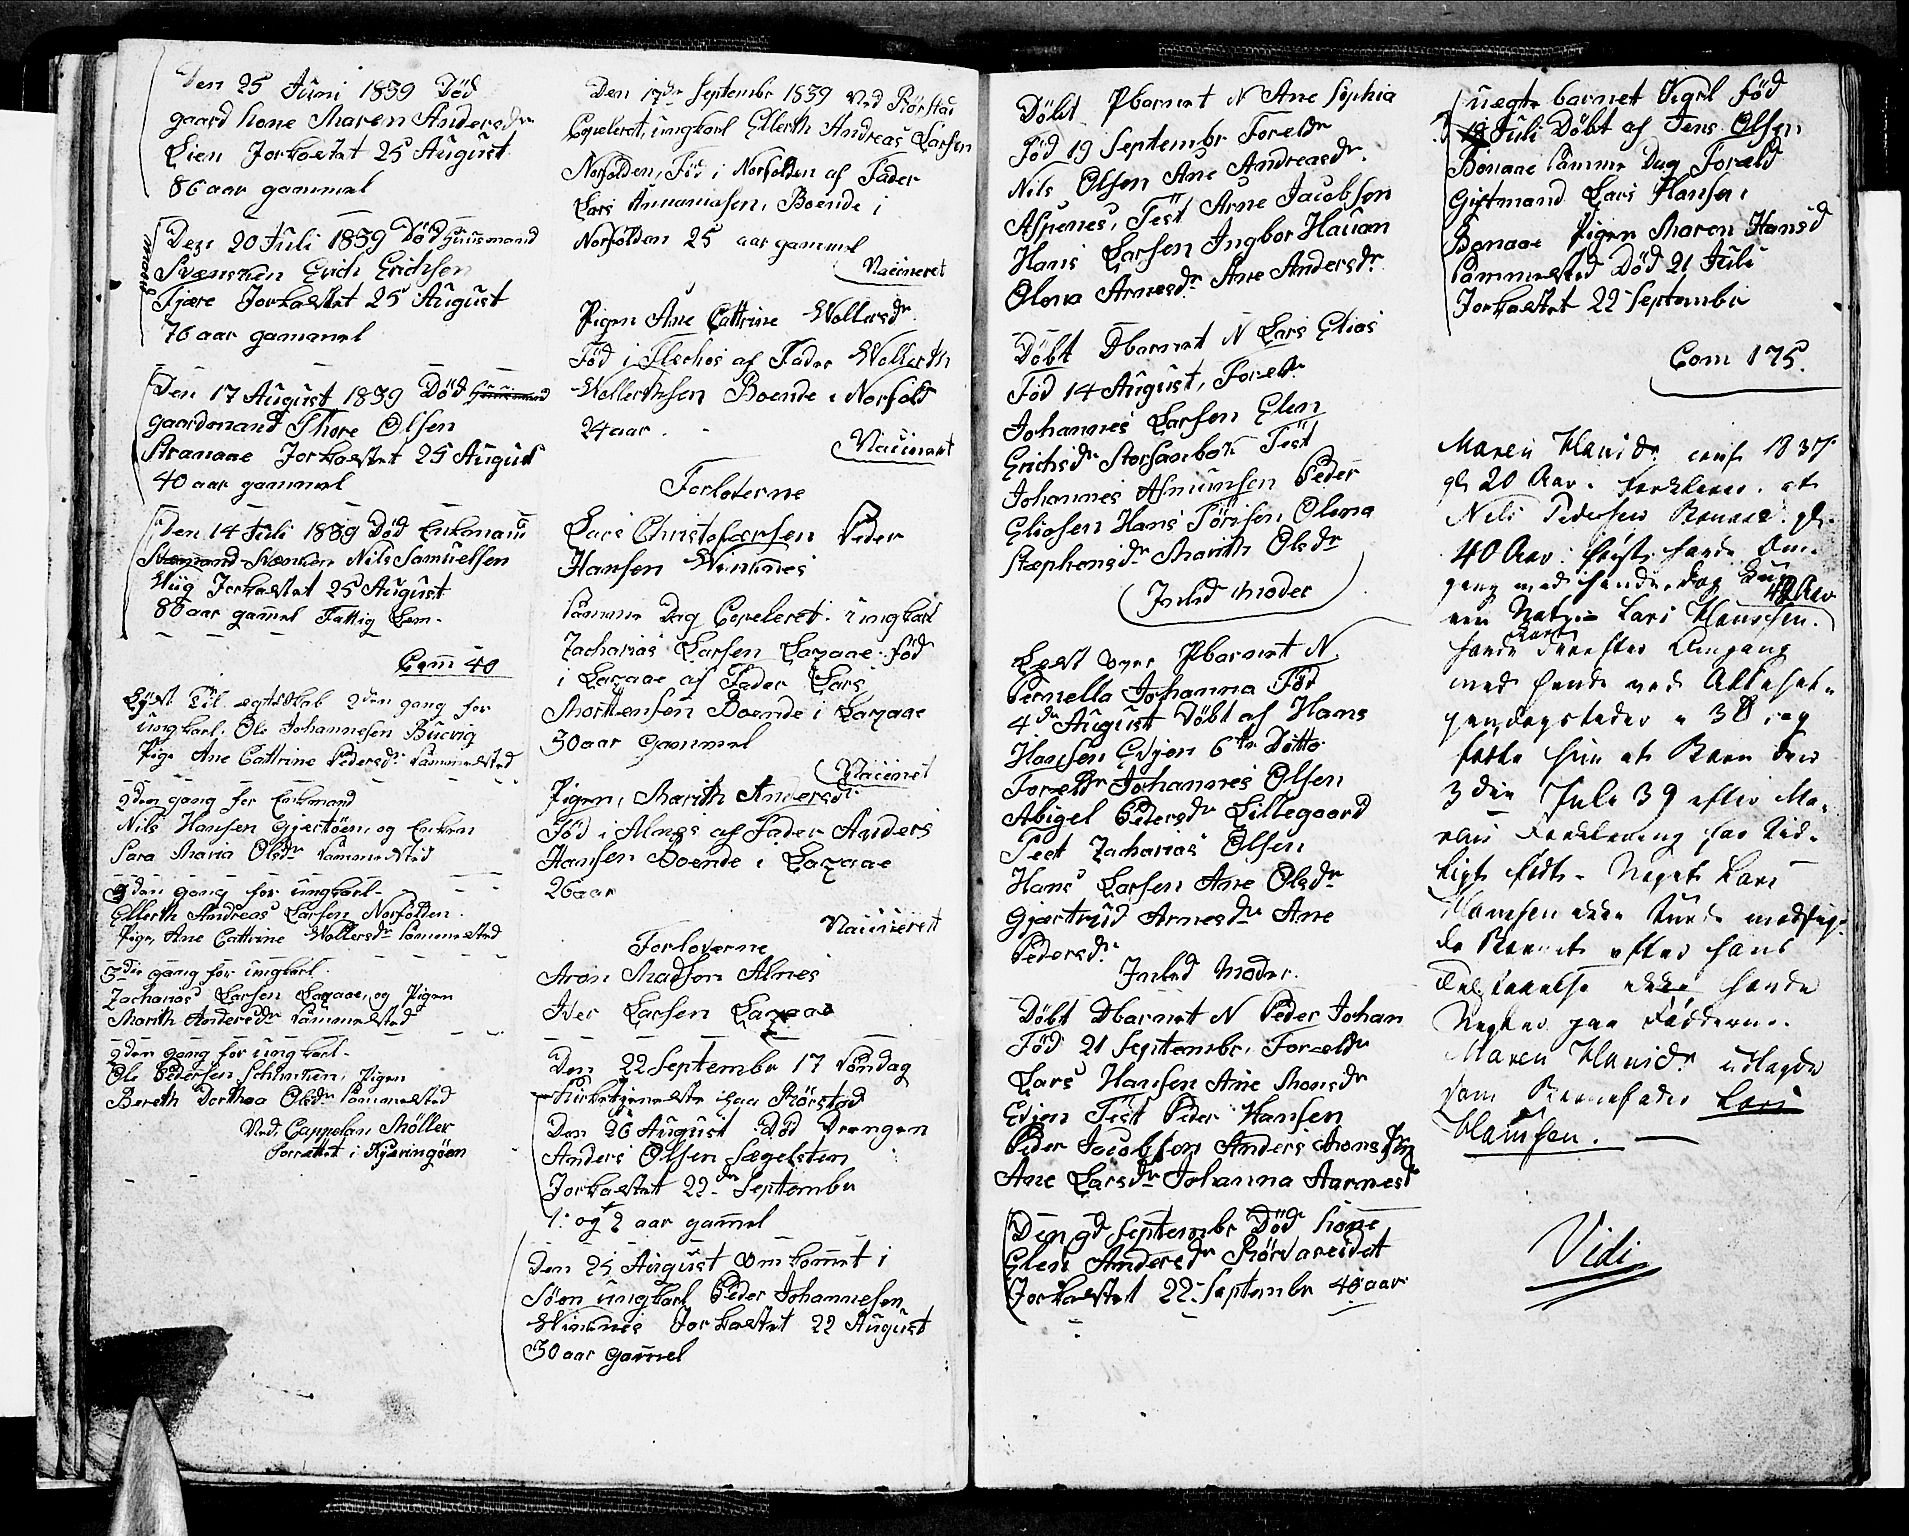 Den 25 Juni 1839 Død
gaard kone Maren Andersdr
Lien Jorkastet 25 August
86 aar gammel
Den 20 Juli 1839 Død Huusmand
Svænsken Erich Erichsen
Fjære Jorkastet 25 August
76 aar gammel
Den 17 August 1839 Død Huusmand
gaardmand Thore Olsen
Stranaae Jorkastet 25 August
40 aar gammel
Den 14 Juli 1839 Død Enkmau
Svænken Nils Samuelsen
Wiig Jorkastet 25 August
80 aar gamel Fattig Lem.
Com 40
Lyst Til ægteskab 2den gang for
ungkarl, Ole Johannesen Bucvig
Pige Ane Cattrine Pedersdr sammested
2den gang for Enkmand
Nils Hansen Gjertøen, og Enken
Sara Maria Olsdr sammested
2den gang for ungkarl
Ellerth Andreas Larsen Norfolden
Pige Ane Cattrine Wollersdr sammested
3die gang for ungkarl
Zacharias Larsen Laxaae, og Pigen
Marith Andersdr sammested
2den gang for ungkarl
Ole Pedersen Pigen
Bereth Dorthea Olsdr sammested
Ved Cappelan Møller
forrettet i Kjæringøen
Den 17de Septembr 1839 Ved Rørstad
Copeleret, ungkarl Ellerth Andreas Larsen
Norfolden, Fød i Norfolden af Fader
Lars Annaniasen, Boende i
Norfolden 25 aar gammel
Vacineret
Pigen Ane Cattrine Wollersdr
Fød i af Fader Wollerth
Wollerthsen Boende i Norfold
24 aar
Vacineret
Forloverne
Lars Christofærsen Peder
Hansen Winknes
samme Dag Copeleret ungkarl
Zacharias Larsen Laxaae fød
i Laxaae af Fader Lars
Morttensen Boende i Laxaae
30 aar gammel
Vacinet
Pigen, Marith Andersdr
Fød i Alnes af Fader Anders
Hansen Boende i Laxaae
26 aar
Vacineret
Forloverne
Aron Madsen Alnes
Iver Larsen Laxaae
Den 22 Septembr 17 Søndag
Kirketjeneste paa Rørstad
Den 26 August Død Drengen
Anders Olsen Sægelsten
Jorkastet 22de Septembr
1: og ½ aar gamel
Den 25 August omkomet i
Søen ungkarl Peder Johannesen
Winknes Jorkastet 22 August
30 aar gamel
Døbt Pbarnet N Ane Sophia
Fød 19 Septembr Foreldr
Nils Olsen Ane Andreasdr.
Aspenes, Test Arne Jacobsen
Hans Larsen Ingbor Hauan
Olena Arnesdr Ane Andersdr
Døbt Dbarnet N Lars Elias
Fød 14 August, Foreldr
Johannes Larsen Elen
Erichsdr Storsanbok Test
Johannes Asmunsen Peder
Eliasen Hans Tørisen Olena
Stæphensdr Marith Olsdr
Inled Moder
Læst over Pbarnet N.
Pernella Johanna Fød
4de August Døbt af Hans
Hansen Evjen 6te Ditto
Foreldr Johannes Olsen
Abigel Pedersdr Lillegaard
Test Zacharias Olsen
Hans Larsen Ane Olsdr
Gjærtrud Arnesdr Ane
Pedersdr
Inled Moder.
Døbt Dbarnet N Peder Johan
Fød 21 Septembr, Foreldr
Lars Hansen Ane Monsdr
Evjen Test Peder Hansen
Peder Jacobsen Anders
Ane Larsdr Johanna Aarnesd
Den 9de Septembr Død kone
Elen Andersdr Rørvareidet
Jorkastet 22 Septembr 40 aar
uægte barnet Vigel fød
19 Juli Døbt af Jens Olsen
Bonaae samme Dag Foræld
Giftmand Lars Hansen
Bonaae Pigen Maren Hansd
sammested Død 21 Juli
Jorkastet 22 Septembr
Com 175.
Maren Hansdr conf 1837
gl 20 Aar. forklarer at
Nils Pedersen Bonaae gl.
40 Aar første havde Om-
gang med hende, dog kun
een Nat – Lars Hanssen 42 Aar
havde derefter Omgang
med hende ved
38, og
fødte hun et Barn den
3die Juli 39 efter Ma-
rens Forklaring for tid-
ligt født. Negt Lars
Hanssen ikke turde modsig-
de Barnet efter hans
ikke havde
Negtes paa Fødderne.
Maren Hansdr udlagde
som Barnefader Lars
Hanssen.
Vidi